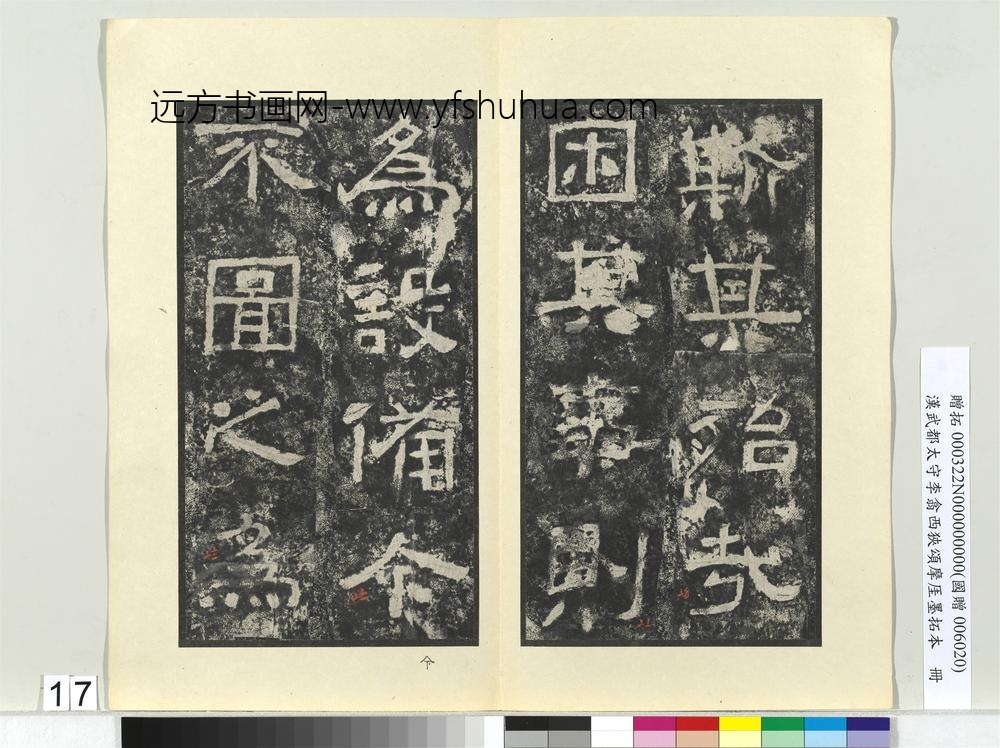 远方书画网-www.yfshuhua.com
斯其殆哉
困其事則
為設備今
不圖之為
今
17
贈拓 000322N000000000(國贈 006020)
漢武都太守李翕西狹頌摩厓墨拓本 冊